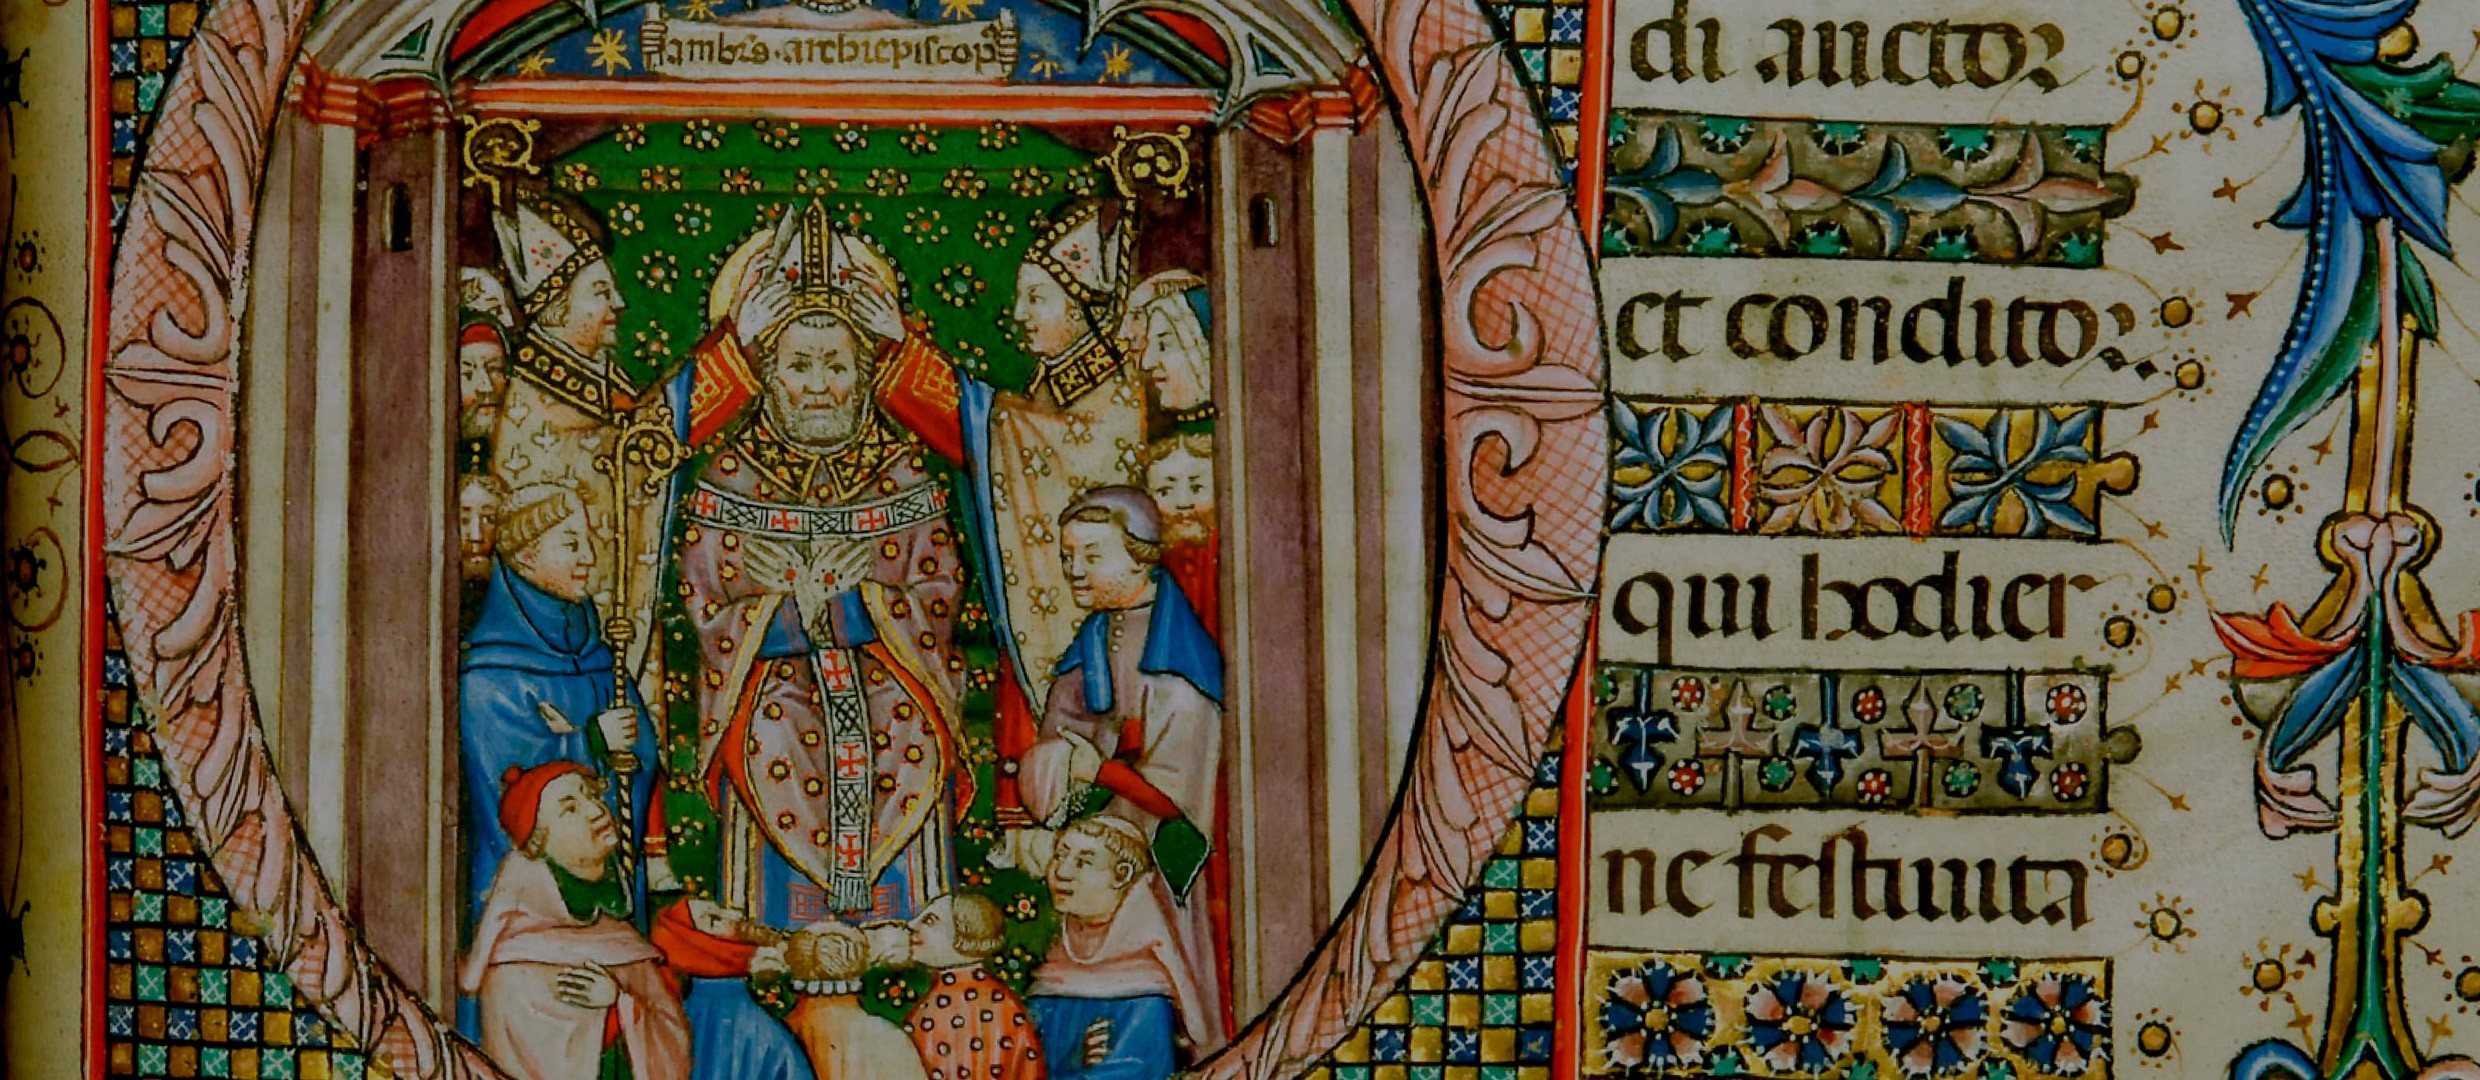 ambr̃s · archiepiscop
di auctor
et conditor.
qui hodier
ne festiuita